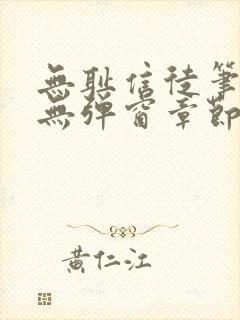 無耻信徒筆
無彈窗章節
黃仁江